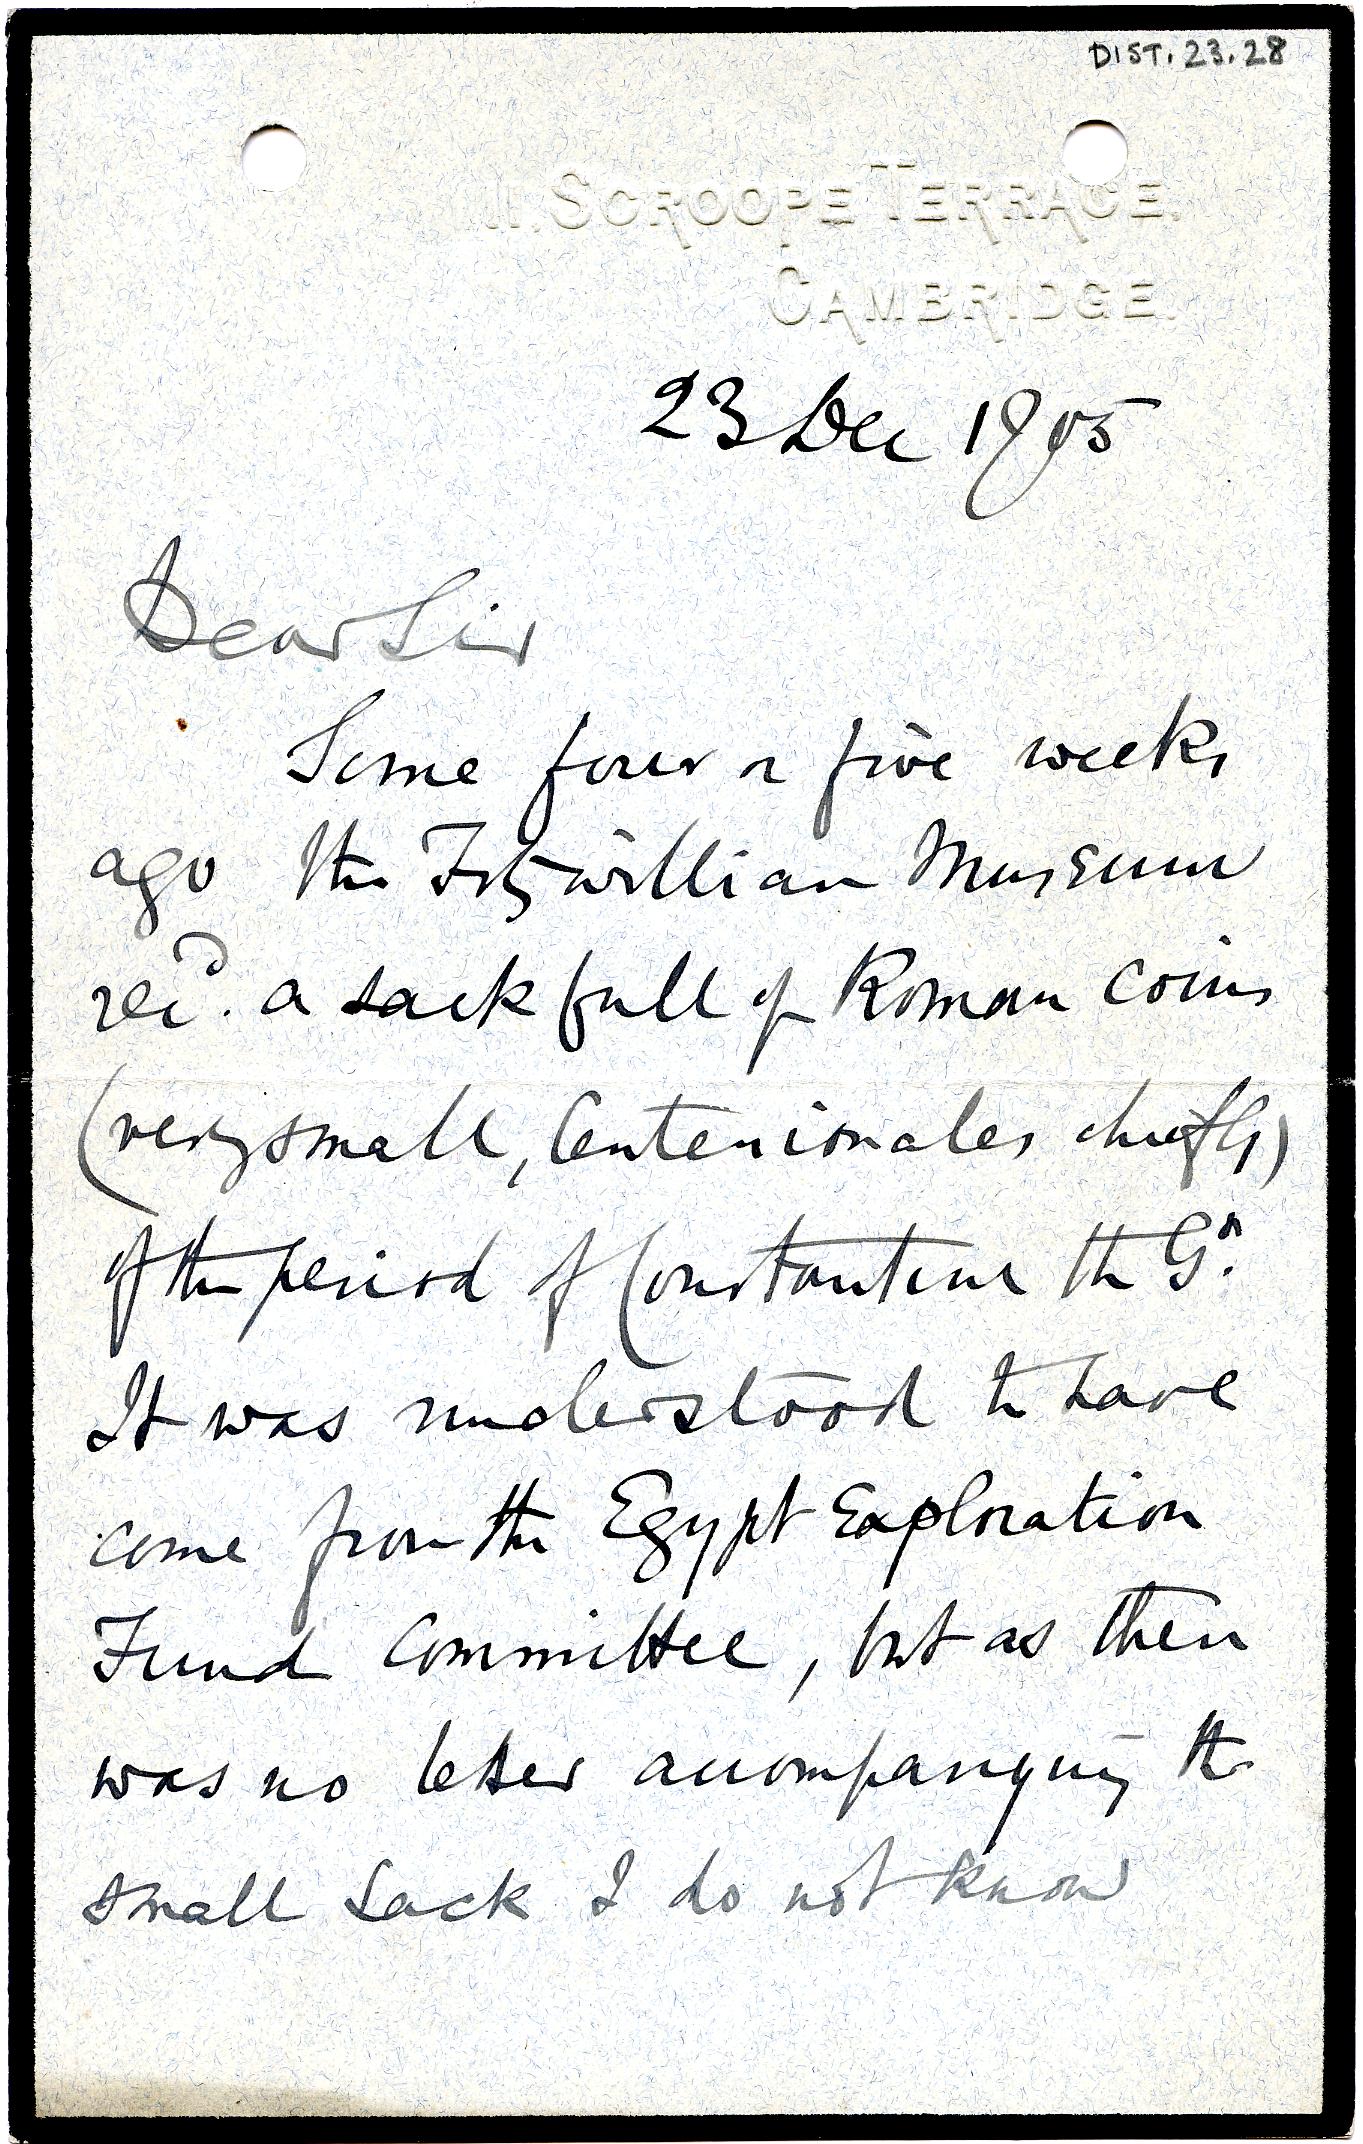 DIST. 23.28
11. SCROOPE TERRACE.
CAMBRIDGE.
23 Dec 1905
Dear Sir
Some four or five weeks
ago the Fitzwilliam Museum
recd. a sack full of Roman coins
(very small, Centenionales chiefly)
of the period of Constantine the Gt.
It was understood to have
come from the Egypt Exploration
Fund Committee, but as there
was no letter accompanying the
small sack I do not know